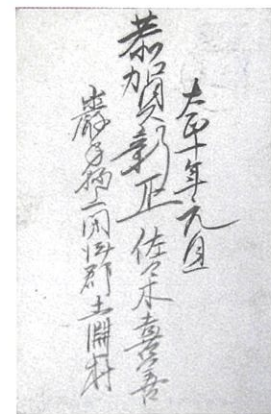 大正十年元旦
恭賀新正 佐々木喜善
岩手縣上閉伊郡土淵村